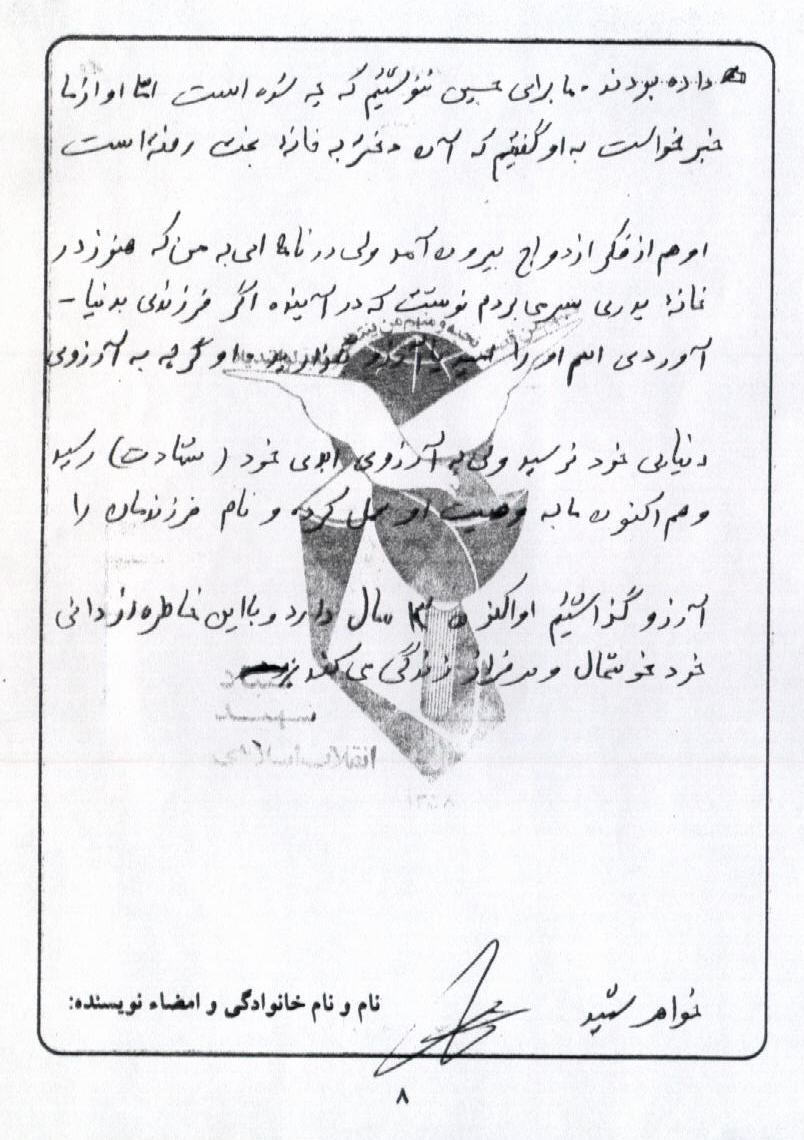 داده بودند. ما برای حسین ننوشتیم که چه شده است اما او از ما
خبر خواست به او گفتیم که آن دختر به خانهٔ بخت رفته است
او هم از فکر ازدواج بیرون آمد ولی در نامه ای به من که هنوز در
خانهٔ پدری سر می بردم نوشت که در آینده اگر فرزندی بدنیا -
آوردی اسم او را بگذارید و او گرچه به آرزوی
دنیایی خود نرسید ولی به آرزوی ابدی خود (شهادت) رسید
و هم اکنون ما به وصیت او عمل کرده و نام فرزندمان را
آرزو گذاشتیم او اکنون سال دارد و با این خاطره از دائی
خود خوشحال و سرفراز زندگی می کند
انقلاب اسلامی
خواهر شهید
نام و نام خانوادگی و امضاء نویسنده:
۸